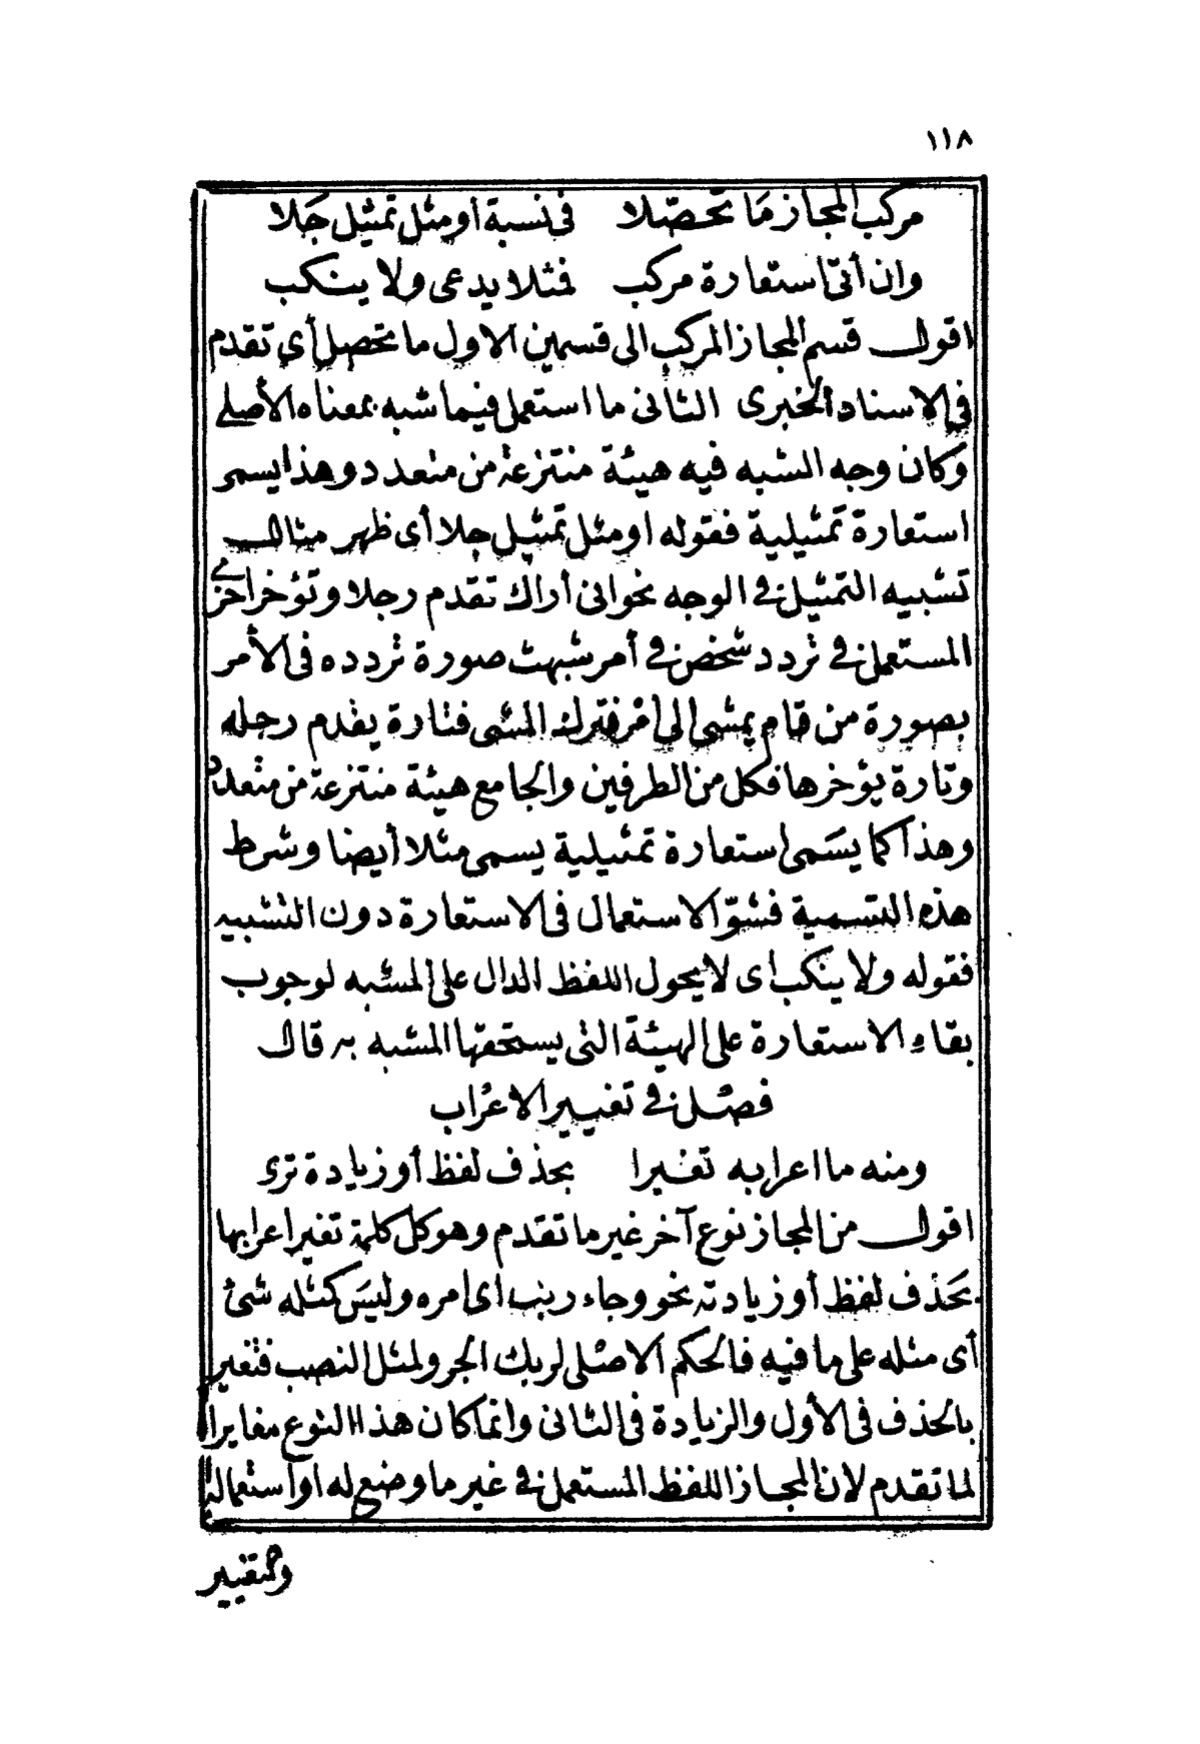 ١١٨
مركب المجاز مَا تحصّلا في نسبة أو مثل تمثيل جَلا
وان أتى استعارة مركب فمثلا يدعى ولا ينكب
اقول قسم المجاز المركب الى قسمين الاول ما تحصل أي تقدم
في الاسناد الخبرى الثانى ما استعمل فيما شبه بمعناه الأصلي
وكان وجه الشبه فيه هيئة منتزعة من متعدد وهذا يسمى
استعارة تمثيلية فقوله او مثل تمثيل جلا أى ظهر مثال
تشبيه التمثيل في الوجه نحو انى أراك تقدم رجلا وتؤخر اخرى
المستعمل في تردد شخص في أمر شبهت صورة تردده فى الأمر
بصورة من قام يمشى الى أمر فترك المشى فتارة يقدم رجله
وتارة يؤخرها فكل من الطرفين والجامع هيئة منتزعة من متعدد
وهذا كما يسَمى استعارة تمثيلية يسمى مثلا أيضا وشرط
هذه التسمية فشوّ الاستعمال فى الاستعارة دون التشبيه
فقوله ولا ينكب اى لا يحول اللفظ الدال على المشبه لوجوب
بقاء الاستعارة على الهيئة التى يستحقها المشبه به قال
فصل في تغيير الاعراب
ومنه ما اعرابه تغيرا بحذف لفظ أو زيادة ترى
اقول من المجاز نوع آخر غير ما تقدم وهو كل كلمة تغير اعرابها
بحَذف لفظ أو زيادته نحو وجاء ربك أى امره وليسَ كمثله شئ
أى مثله على ما فيه فالحكم الاصلى لربك الجر ولمثل النصب فتغير
بالحذف فى الأول والزيادة فى الثانى وانما كان هذا النوع مغايرا
لما تقدم لان المجاز اللفظ المستعمل في غير ما وضع له او استعماله
والتغيير